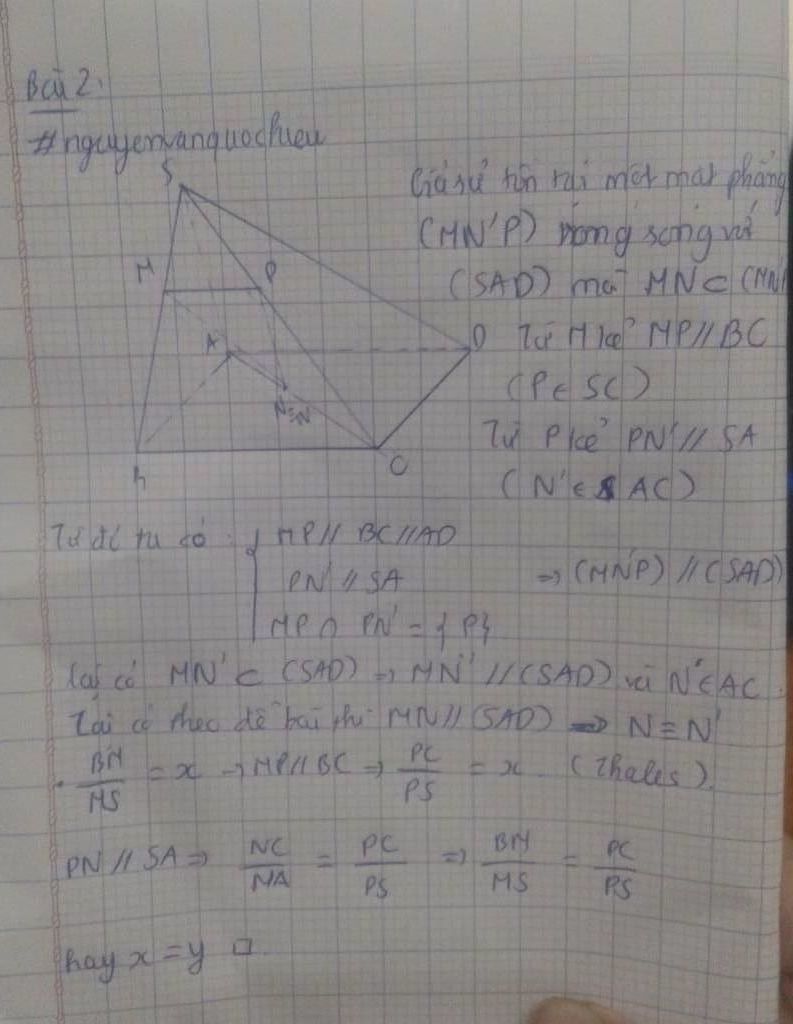 Bài 2:
#nguyenvanquochieu
S
Giả sử tồn tại một mặt phẳng
(MN'P) song song với
M
P
(SAD) mà MN ⊂ (MN'
A
D
Từ M kẻ MP // BC
(P ∈ SC)
N'≡N
Từ P kẻ PN' // SA
B
C
(N' ∈ AC)
Từ đó ta có
MP // BC // AD
PN' // SA ⇒ (MN'P) // (SAD)
MP ∩ PN' = {P}
Lại có MN' ⊂ (SAD) ⇒ MN' // (SAD) và N' ∈ AC
Lại có theo đề bài thì MN // (SAD) ⇒ N ≡ N'
BM/MS = x → MP // BC ⇒ PC/PS = x (Thales)
PN // SA ⇒ NC/NA = PC/PS ⇒ BM/MS = PC/PS
hay x = y □